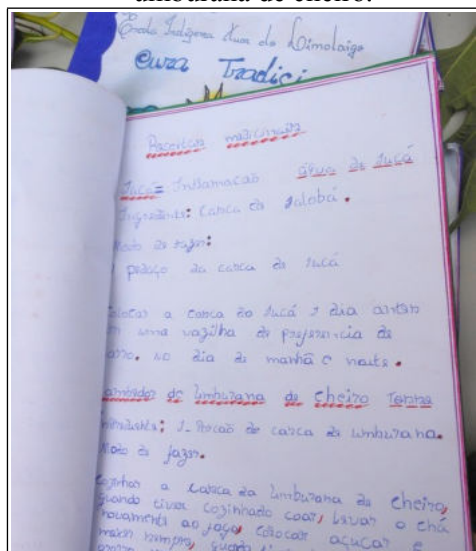 amburana de cheiro.
Escola Indígena
cura Tradici
Receitas medicinais
água de Jucá
Jucá = Inflamacão
Ingrediente: Casca da
Modo de fazer:
pedaço da casca da Jucá
colocar a casca do Jucá 1 dia antes
em uma vazilha de preferencia de
barro. no dia de manhã e noite.
Lambedor de Umburana de cheiro
1 Porcaõ de casca da umburana.
Modo de fazer.
Cozinhar a casca da Umburana de cheiro,
quando tiver cozinhado coar, levar o chá
novamente ao fogo, colocar açucar e